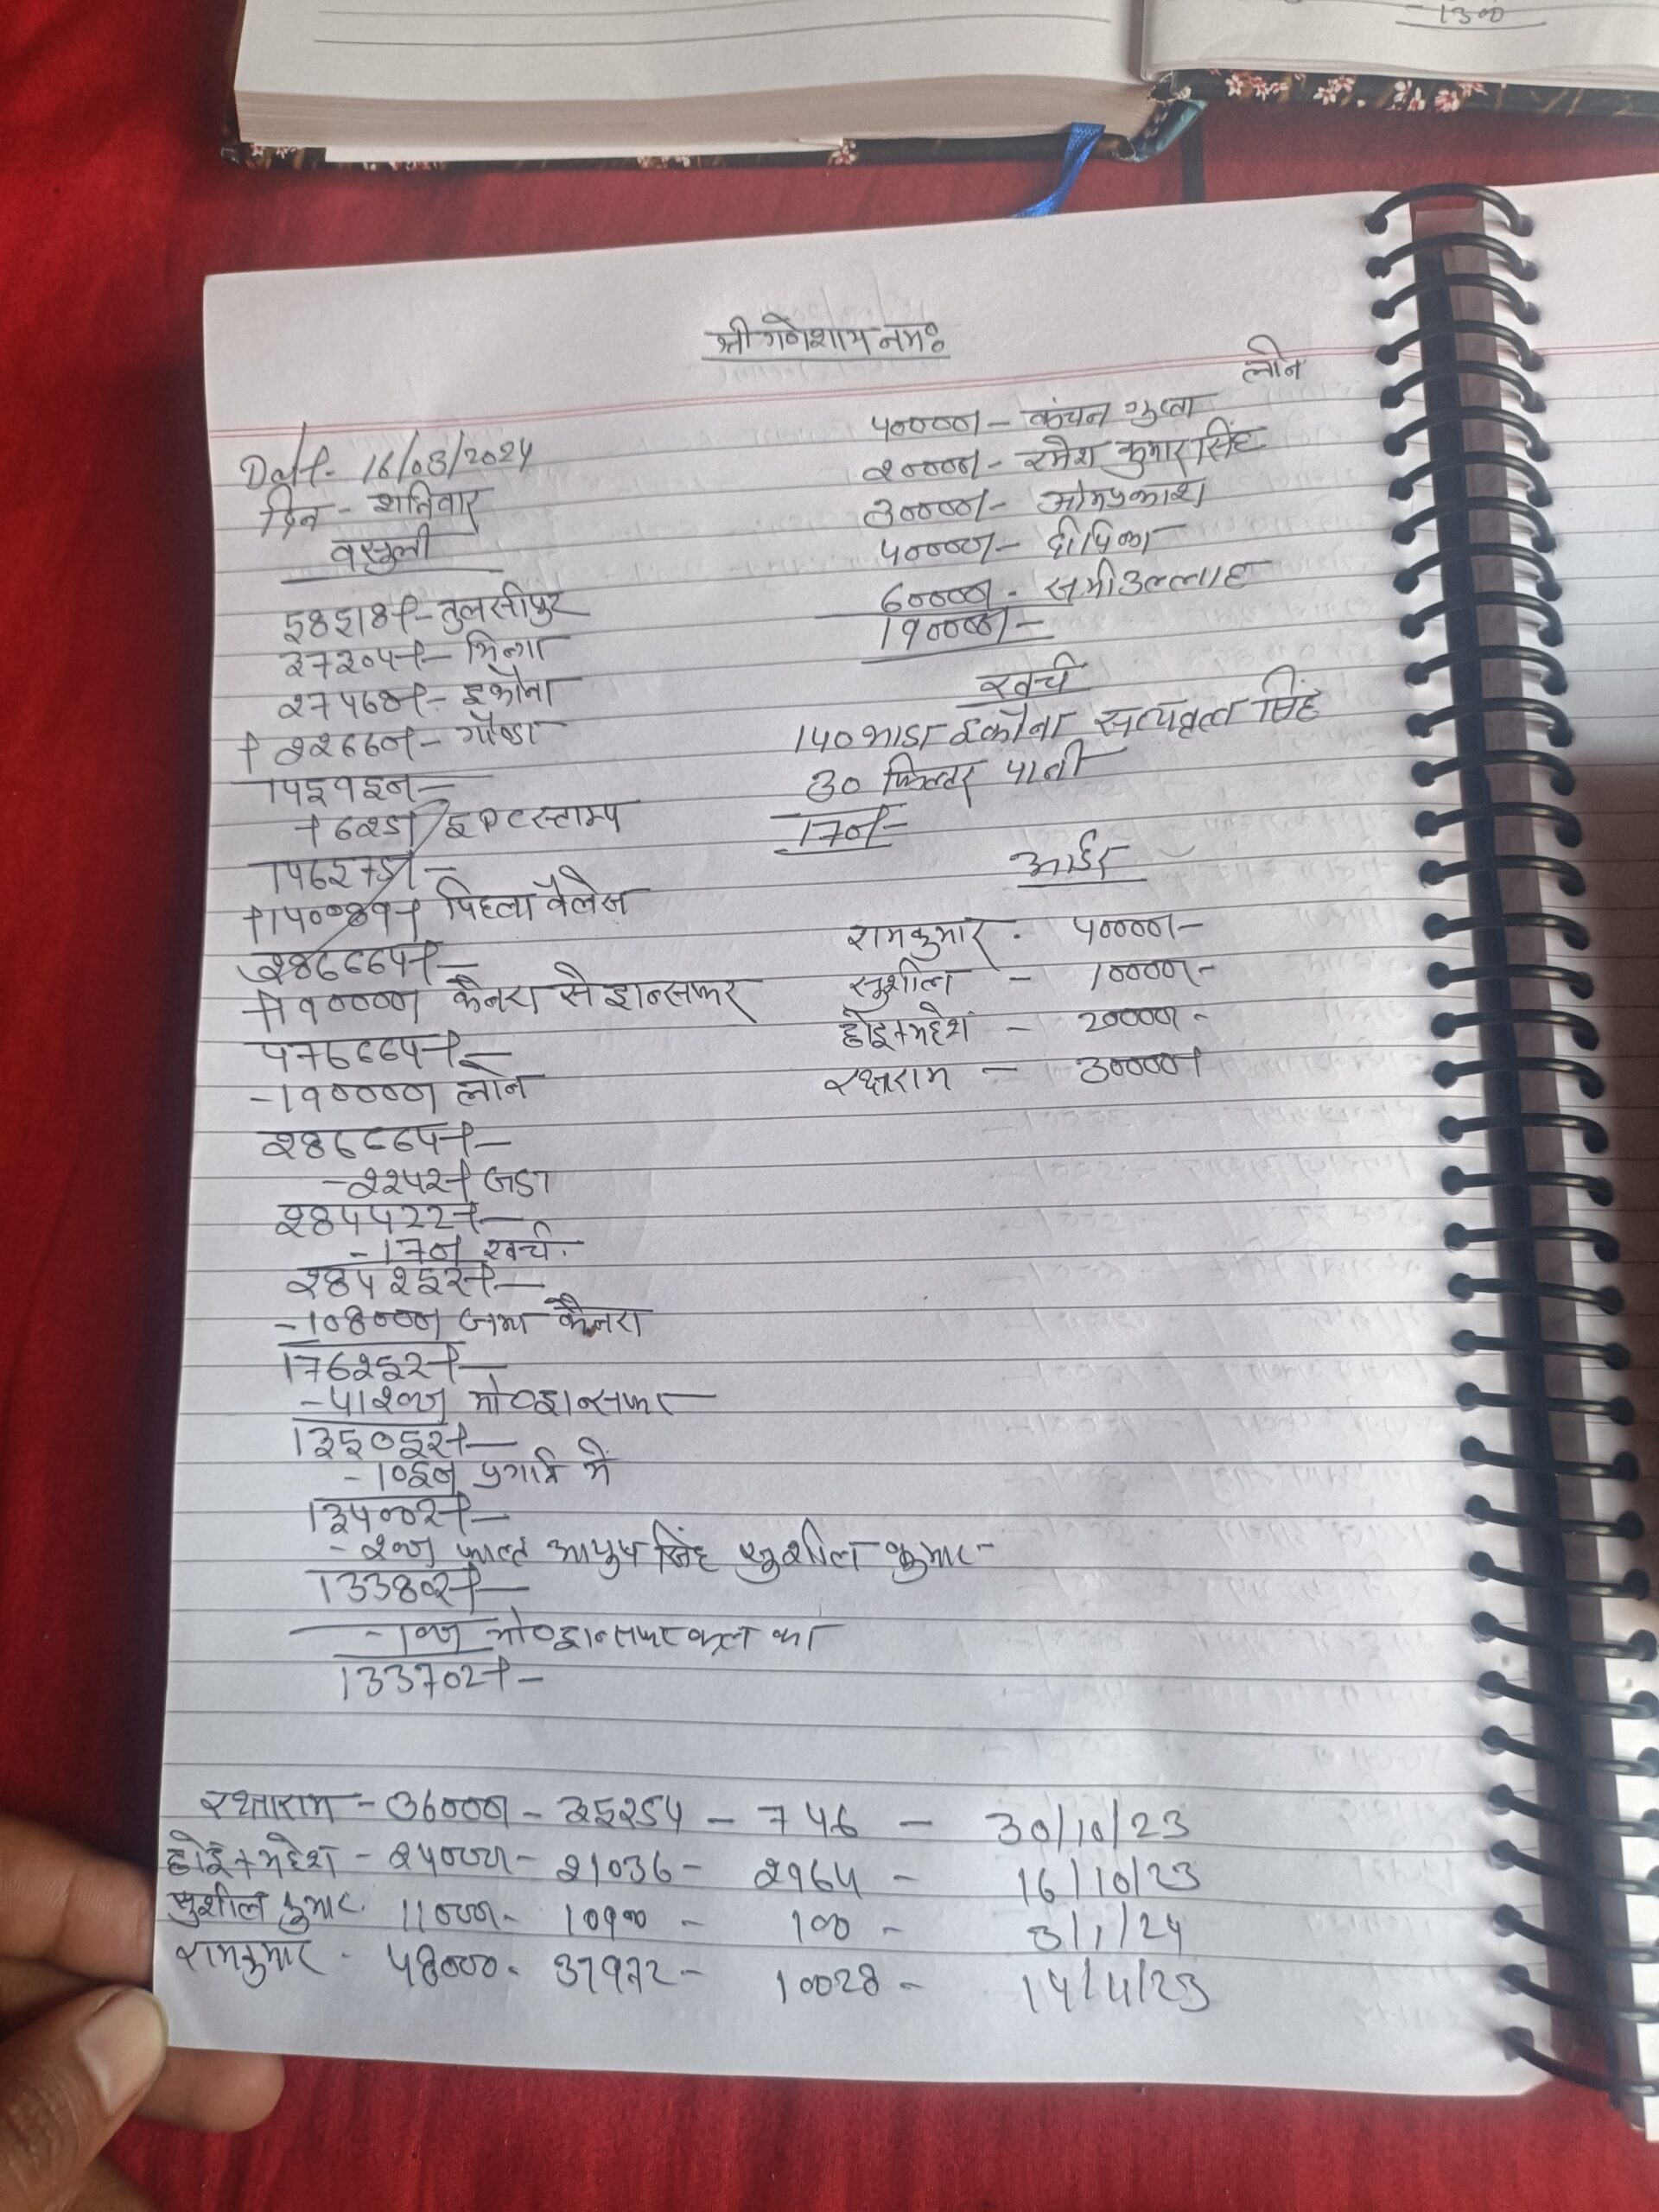 -1300
श्री गणेशाय नमः
लोन
Date- 16/03/2024
दिन - शनिवार
वसुली
58518/- तुलसीपुर
37304/- भिन्गा
27468/- इकौना
+ 22660/- गोण्डा
145950/-
+ 625/ 5 PC स्टाम्प
146575/-
+140089/- पिछला बैलेंस
286664/-
+190000/ कैनरा से ट्रान्सफर
476664/-
-190000/ लोन
286664/-
-2242/ जडा
284422/-
-170/ खर्च
284252/-
-108000/ जमा कैनरा
176252/-
-41200/ मो० ट्रान्सफर
135052/-
-1050/ प्रगति में
134002/-
-200/ फाल्ट आयुष सिंह सुशील कुमार-
133802/-
-100/ मो० ट्रान्सफर कल का
133702/-
40000/- कंचन गुप्ता
20000/- रमेश कुमार सिंह
30000/- ओमप्रकाश
40000/- दीपिका
60000/- समीउल्लाह
190000/-
खर्च
140 भाडा इकौना सत्यव्रत सिंह
30 फिल्टर पानी
170/-
आर्डर
रामकुमार - 40000/-
सुशील - 10000/-
होइ+महेश - 20000/-
रक्षाराम - 30000/-
रक्षाराम - 36000/- 35254 - 746 - 30/10/23
होई+महेश - 24000/- 21036 - 2964 - 16/10/23
सुशील कुमार. 11000/- 10900 - 100 - 3/1/24
रामकुमार - 48000 - 37972 - 10028 - 14/4/23